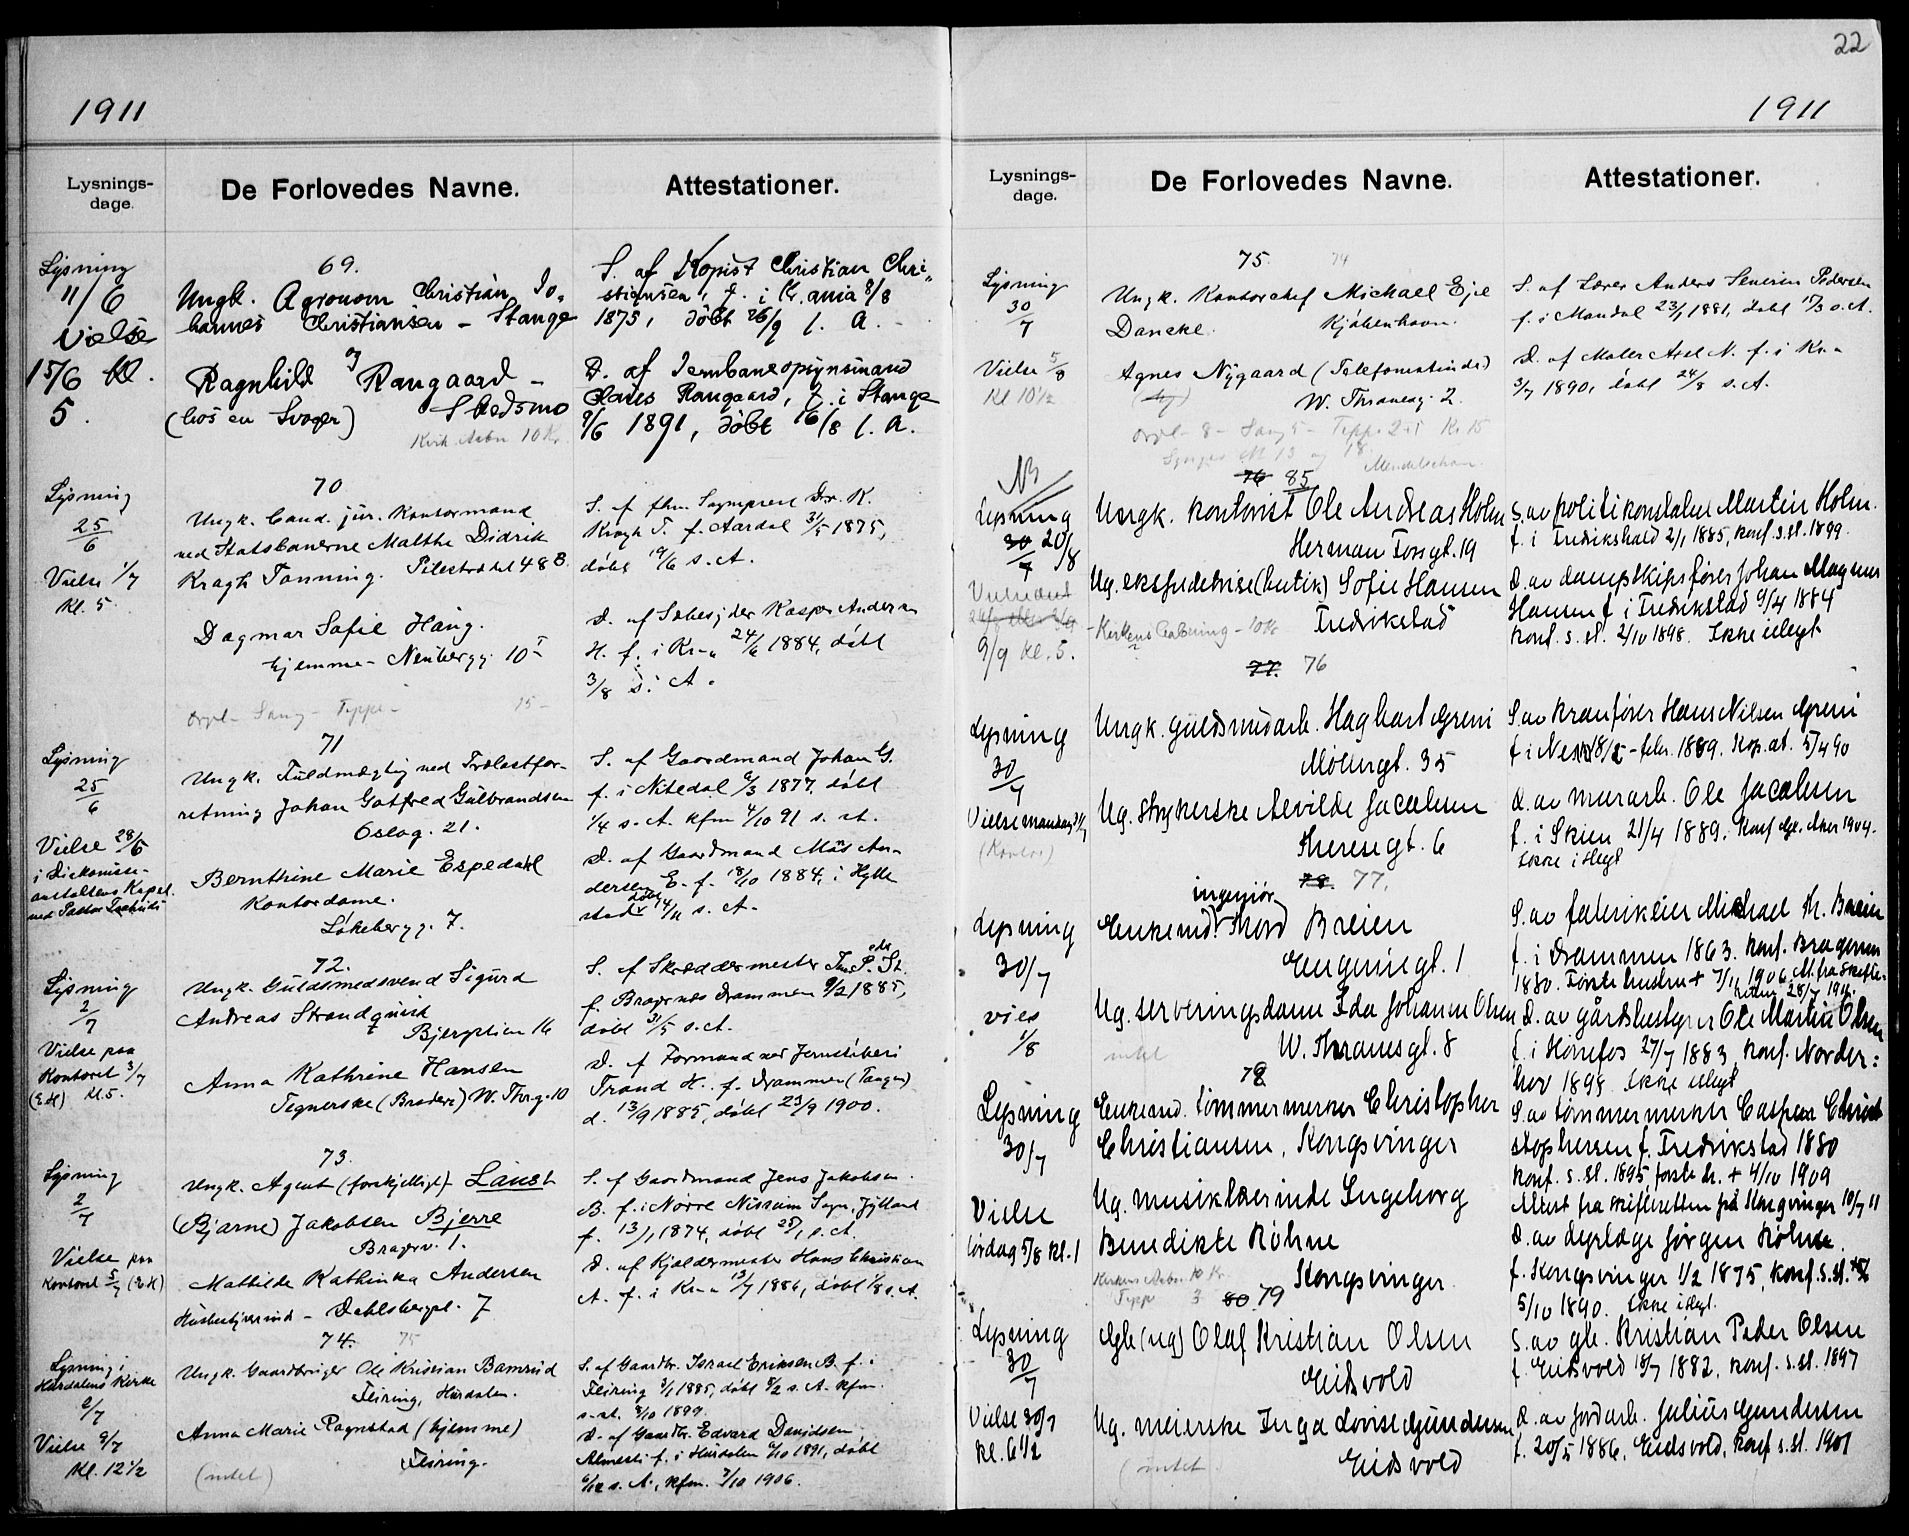 1911
Lysnings-
dage.
De Forlovedes Navne.
Attestationer.
Lysning
11/6
Vielse
15/6 kl.
5.
69.
Ungk. Agronom Christian Jo„
hannes Christiansen – Stange
og
Ragnhild Rangaard –
(hos en Svoger) Skedsmo
S. af Kopist Christian Chri„
stiansen, f. i Kr.ania 8/8
1875, døbt 26/9 s. A.
D. af Jernbaneopsynsmand
Rangaard, f. i Stange
9/6 1891, døbt 16/8 s. A.
Lysning
25/6
Vielse 1/7
Kl. 5.
70
Ungk. Cand. jur. Kontormand
ved Statsbanerne Malthe Didrik
Kragh Tonning. Pilestrædet 48 B
Dagmar Sofie Haug.
hjemme – Neubergg. 10
Orgel – Sang – Teppe – 15 –
S. af
Kragh T. f. Aardal 31/5 1875,
døbt 19/6 s. A.
D. af Kasper Andersen
H. f. i Kr-a 24/6 1884, døbt
3/8 s. A.
Lysning
25/6
Vielse 28/6
i Diakonisse-
anstaltens Kapel
71
Ungk. Fuldmægtig ved Trælastfor-
retning Johan Gotfred Gulbrandsen
Oslog. 21.
Bernthine Marie Espedahl
Kontordame.
Løkebergg. 7.
S. af Gaardmand Johan G.
f. i Nitedal 9/3 1877, døbt
1/4 s. A. kfm 4/10 91 s. st.
D. af Gaardmand An-
dersen E. f. 18/10 1884, i Hylle
stad s. A.
Lysning
2/7
Vielse paa
Kontoret 3/7
Kl. 5.
72.
Ungk. Guldsmedsvend Sigurd
Andreas Strandquist
16
Anna Kathrine Hansen
Tegnerske (Broderi) W. Thrg. 10
S. af Skreddermester St.
f. Bragernes Drammen 9/2 1885,
døbt 31/5 s. A.
D. af Formand ved Jernstøberi
Trond H. f. Drammen (Tangen)
d. 13/9 1885, døbt 23/9 1900.
Lysning
2/7
Vielse paa
Kontoret 5/7
73.
Ungk. Agent (forskjelligt) Laust
(Bjarne) Jakobsen Bjerre
1.
Mathilde Kathinka Andersen
Dahlsbergst. 7
S. af Gaardmand Jens Jakobsen
B. f. i Nørre Nissum Sogn, Jylland
f. 13/1 1874, døbt 25/1 s. A.
D. af Kjeldermester Hans Christian
A. f. i Kr-a 13/7 1886, døbt 1/8 s. A.
Lysning i
Hurdalens Kirke
2/7
Vielse 9/7
Kl. 12 1/2
74. 75
Ungk. Gaardbruger Ole Kristian Bamrud
Feiring, Hurdalen.
Anna Marie Ragnstad (hjemme)
Feiring.
(intet)
S. af Gaardbr. Israel Eriksen B. f. i
Feiring 3/1 1885, døbt 8/2 s. A. kfm.
s. st. 8/10 1899
D. af Gaardbr. Edvard Davidsen
f. i Hurdalen 9/10 1891, døbt
6/12 s. A., kfm. 7/10 1906.
22
1911
Lysnings-
dage.
De Forlovedes Navne.
Attestationer.
Lysning
30/7
Vielse 5/8
Kl 10 1/2
75. 74
Ungk. Kontorchef Michael Eje
Dancke. Kjøbenhavn.
Agnes Nygaard (Telefonistinde)
W. Thranesg. 2.
S. af Lærer Anders Severin Pedersen
f. i Mandal 23/1 1881, døbt 17/3 s. A.
D. af Maler Axel N. f. i Kr-a
3/7 1890, døbt 24/8 s. A.
NB
Lysning
30/7 20/8
9/9 kl. 5.
76 85
Ungk. kontorist Ole Andreas Holm
Herman Fossgt. 19
Ug. ekspeditrise (butik) Sofie Hansen
Fredrikstad
S. av politikonstabel Martin Holm.
f. i Fredrikshald 2/1 1885, konf. s. st. 1899.
D. av dampskipsfører Johan Magnus
Hansen f. i Fredrikstad 9/4 1884
konf. s. st. 2/10 1898. Ikke i slegt
Lysning
30/7
Vielse mandag 31/7
(Kontor)
77. 76
Ungk. guldsmedarb. Hagbart Greni
Møllergt. 35
Ug. strykerske Alvilde Jacobsen
Theresegt. 6
S. av kranfører Hans Nilsen Greni
f. i Nes 18/2 – febr. 1889. Kop.at. 5/4 90
D. av murarb. Ole Jacobsen
f. i Skien 21/4 1889. Konf. Gl. Aker 1904.
Ikke i slegt
Lysning
30/7
vies
1/8
78. 77.
ingeniør
Enkemd. Thord Breien
Eugeniagt. 1
Ug. serveringsdame Ida Johanne Olsen
W. Thranesgt. 8
intet
S. av fabrikeier Michael Th. Breien
f. i Drammen 1863. Konf. Bragernes
1880. Første hustru + 7/11 1906. At. fra Skifte-
retten 28/7 1911.
D. av gårdsbestyrer Ole Martin Olsen
f. i Hønefos 27/7 1883. Konf. Norder:
hov 1898. Ikke i slegt
Lysning
30/7
Vielse
lørdag 5/8 kl. 1
78
Enkemd. tømmermerker Christopher
Christiansen, Kongsvinger
Ug. musiklærerinde Ingeborg
Benedikte Røhne
Kongsvinger
S. av tømmermerker Casper Christ
stophersen f. Fredrikstad 1880
konf. s. st. 1895, første h. + 4/10 1909
Attest fra skifteretten på Kongsvinger 10/7 11
D. av dyrlæge Jørgen Røhne.
f. Kongsvinger 1/2 1875, konf. s. st.
5/10 1890. Ikke i slegt.
Lysning
30/7
Vielse 30/7
kl. 6 1/2
80. 79
Ugk (ug) Olaf Kristian Olsen
Eidsvold
Ug. meierske Inga Lovise Gundersen
Eidsvold
(intet)
S. av gbr. Kristian Peder Olsen
f. Eidsvold 18/7 1882, konf. s. st. 1897
D. av jordarb. Julius Gundersen
f. 20/5 1886, Eidsvold, konf s. st. 1901